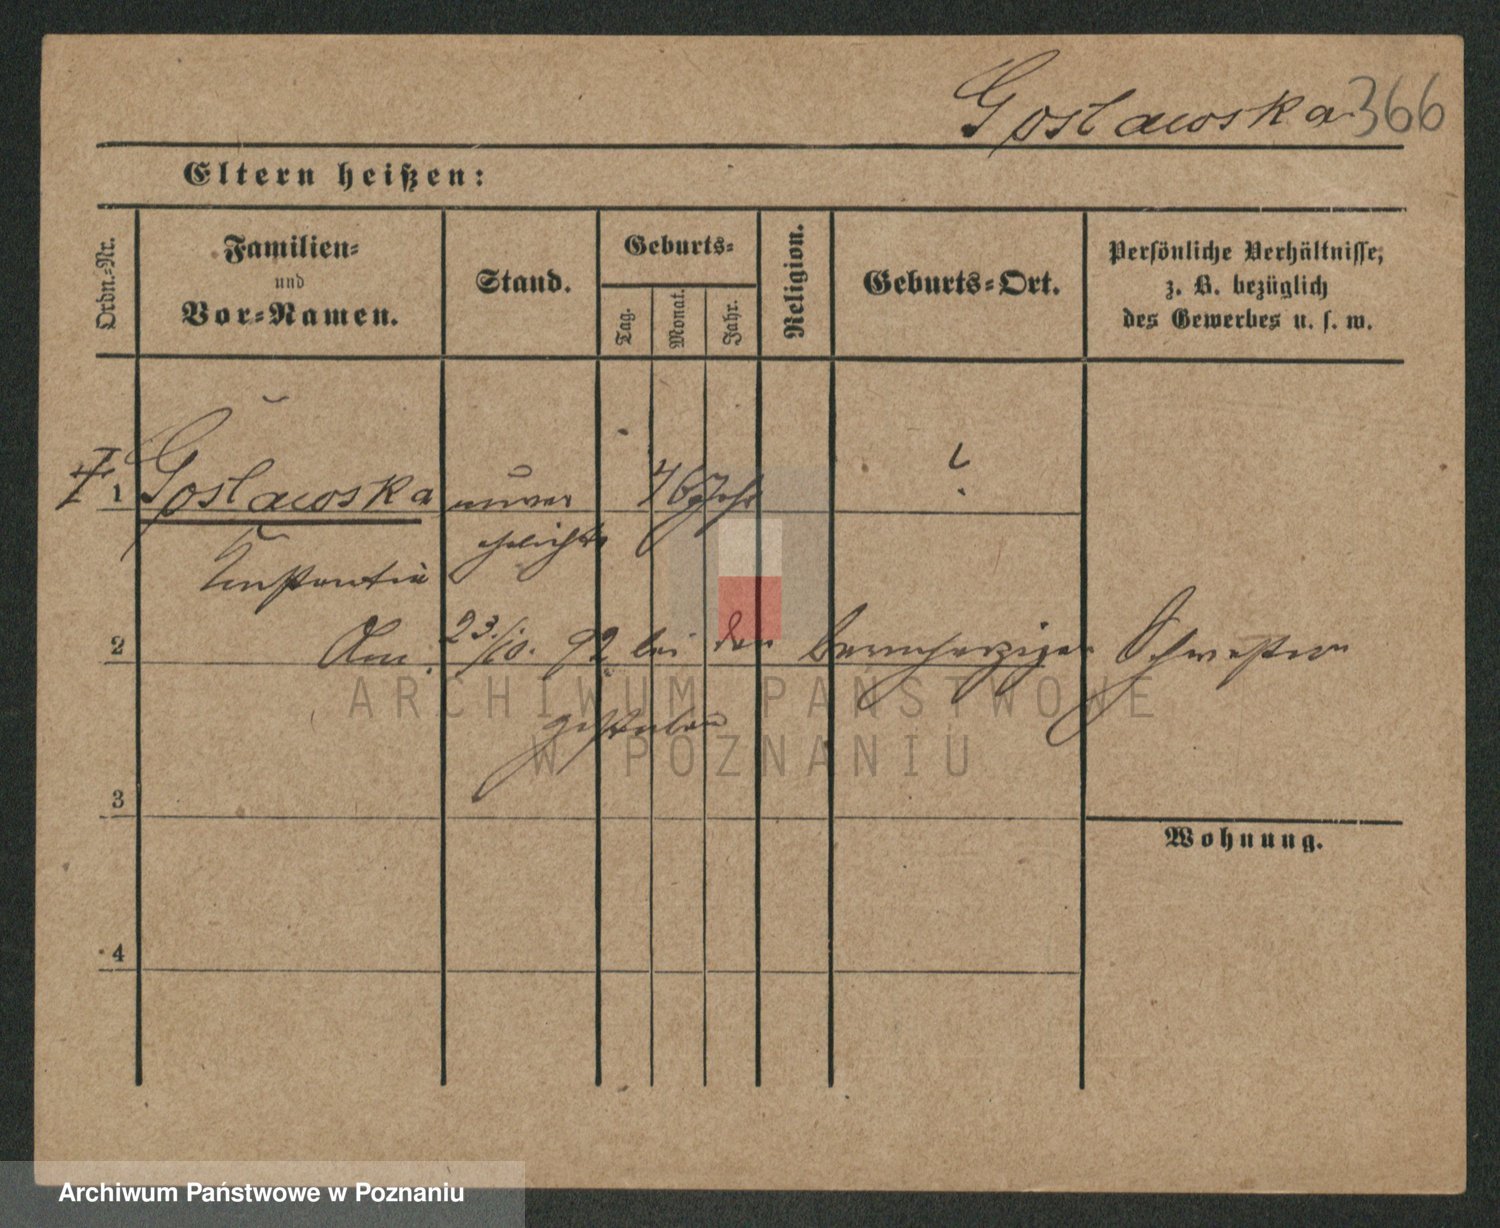 Goslawska 366
Eltern heißen:
Ordn.-Nr.
Familien-
und
Vor-Namen.
Stand.
Geburts-
Tag.
Monat.
Jahr.
Religion.
Geburts-Ort.
Persönliche Verhältnisse,
z. B. bezüglich
des Gewerbes u. s. w.
1 Goslawska unver 76 Jahr ?
ehelicht
Constantia
2 Am 23./10. 92 bei den barmherzigen Schwestern
gestorben
ARCHIWUM PAŃSTWOWE
W POZNANIU
3
Wohnung.
4
Archiwum Państwowe w Poznaniu